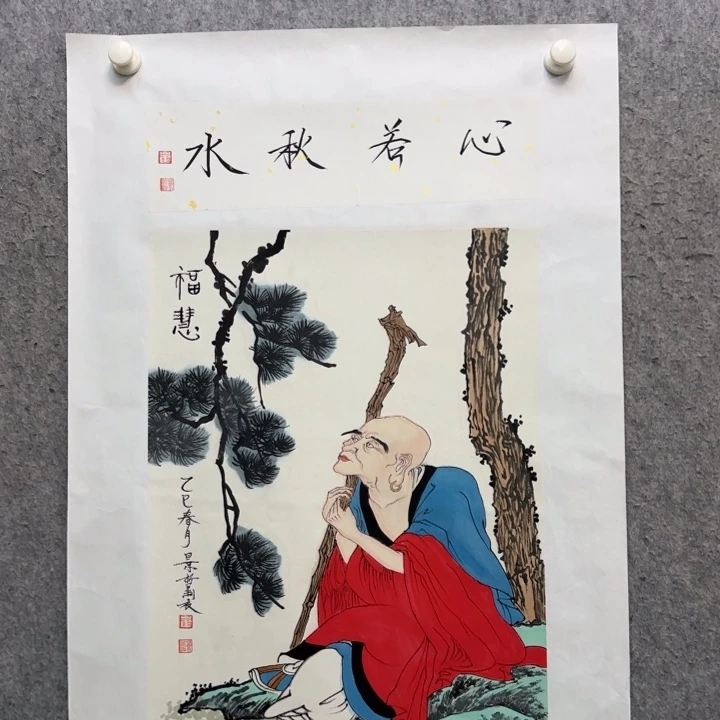 心若秋水
福慧
乙巳春月